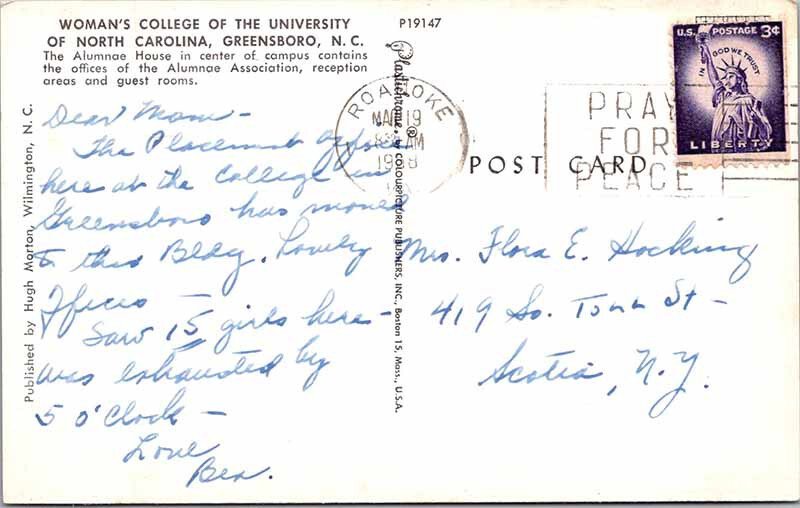 WOMAN'S COLLEGE OF THE UNIVERSITY
OF NORTH CAROLINA, GREENSBORO, N. C.
The Alumnae House in center of campus contains
the offices of the Alumnae Association, reception
areas and guest rooms.
P19147
Dear Mom -
The Placement Office
here at the College in
Greensboro has moved
to this Bldg. Lovely
Offices
Saw 15 girls here -
was exhausted by
5 O'Clock -
Love
Bea.
Published by Hugh Morton, Wilmington, N. C.
Plastichrome ® by COLOURPICTURE PUBLISHERS, INC., Boston 15, Mass., U.S.A.
ROANOKE
MAR 19
AM
PRAY
FOR
PEACE
U.S. POSTAGE 3¢
IN GOD WE TRUST
LIBERTY
POST CARD
Mrs. Flora E. Hocking
419 So. Tenn St -
Scotia, N.Y.